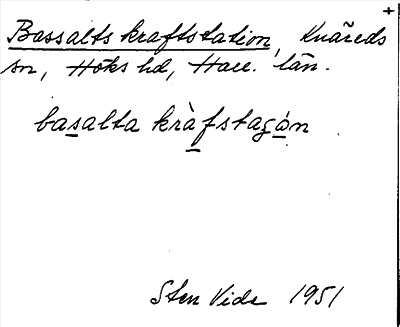 +
Bassalts kraftstation, Knäreds
sn, Höks hd, Hall. län.
basalta kràfstagån
Sten Vide 1951